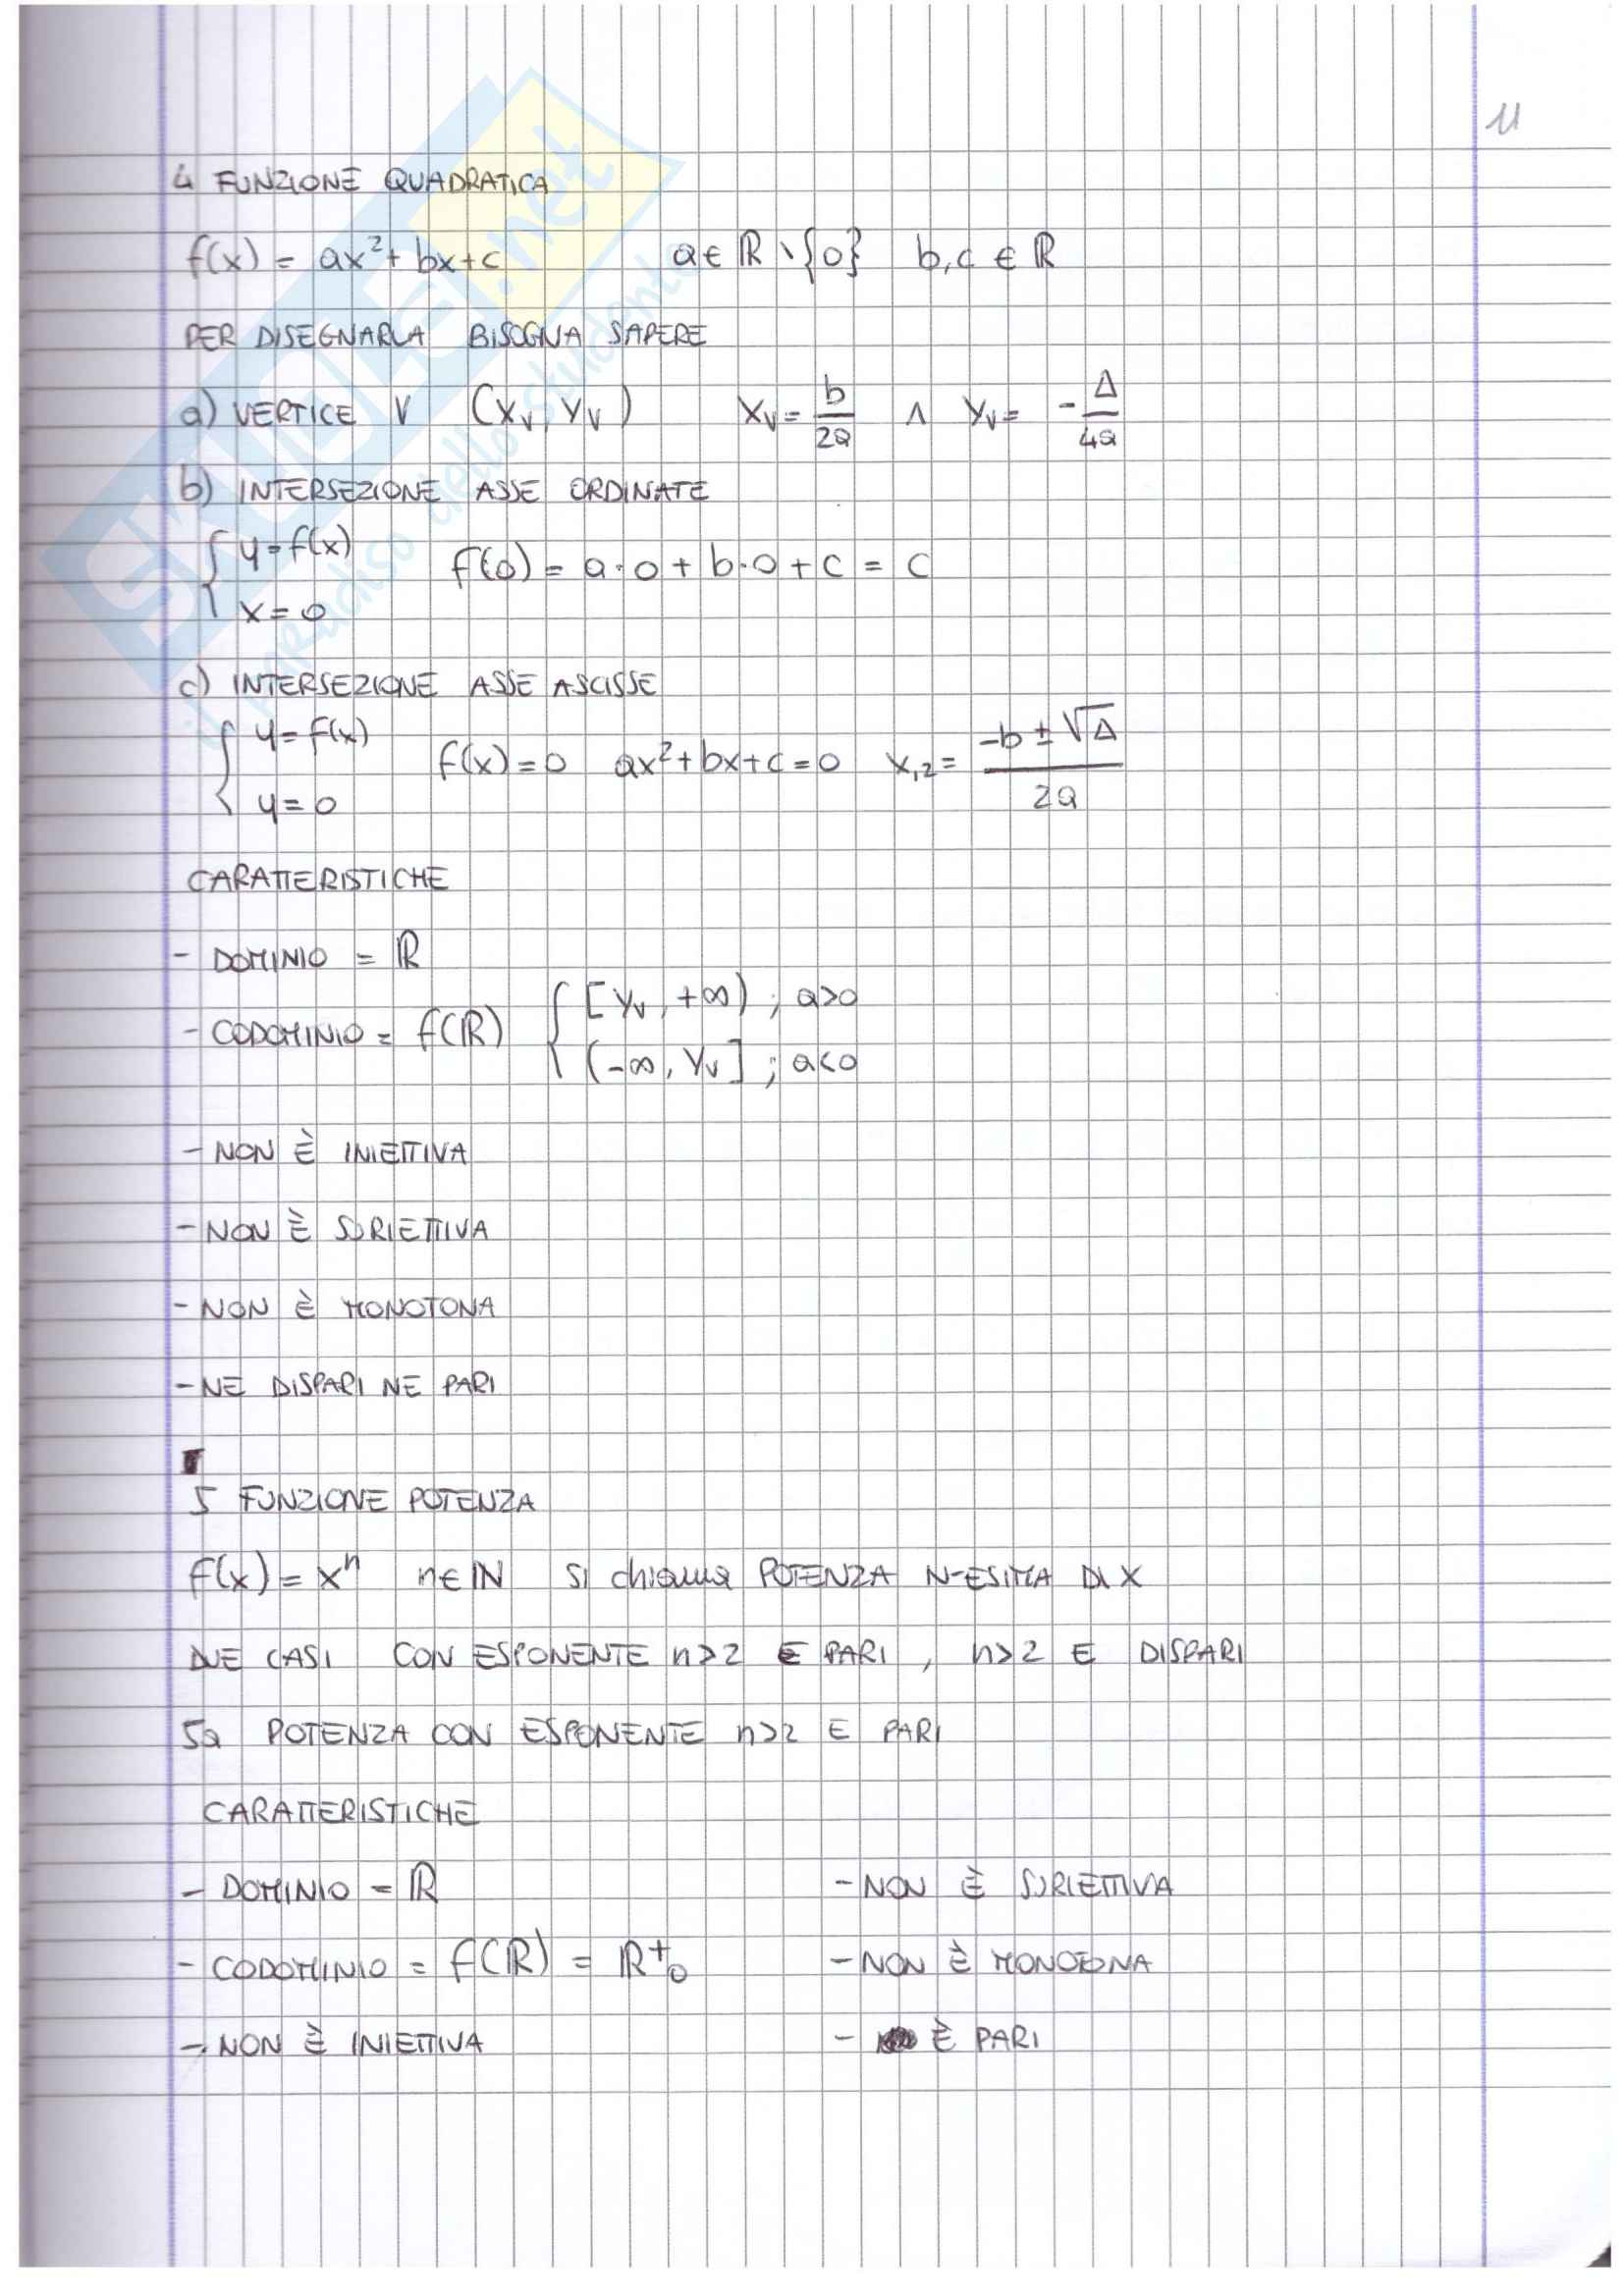 11
4 FUNZIONE QUADRATICA
f(x) = ax²+ bx+c a ∈ ℝ \ {0} b,c ∈ ℝ
PER DISEGNARLA BISOGNA SAPERE
a) VERTICE V (xᵥ, yᵥ) xᵥ = b/2a ∧ yᵥ = -Δ/4a
b) INTERSEZIONE ASSE ORDINATE
{ y = f(x) f(0) = a·0 + b·0 + c = c
{ x = 0
c) INTERSEZIONE ASSE ASCISSE
{ y = f(x) f(x) = 0 ax²+bx+c=0 x₁,₂ = (-b ± √Δ)/2a
{ y = 0
CARATTERISTICHE
- DOMINIO = ℝ
- CODOMINIO = f(ℝ) { [yᵥ, +∞) ; a>0
{ (-∞, yᵥ] ; a<0
- NON È INIETTIVA
- NON È SURIETTIVA
- NON È MONOTONA
- NE DISPARI NE PARI
5 FUNZIONE POTENZA
f(x) = xⁿ n∈ℕ SI chiama POTENZA N-ESIMA DI X
DUE CASI CON ESPONENTE n>2 E PARI , n>2 E DISPARI
5a POTENZA CON ESPONENTE n>2 E PARI
CARATTERISTICHE
- DOMINIO = ℝ - NON È SURIETTIVA
- CODOMINIO = f(ℝ) = ℝ⁺₀ - NON È MONOTONA
- NON È INIETTIVA - È PARI
SKUOLA.net
il paradiso dello studente